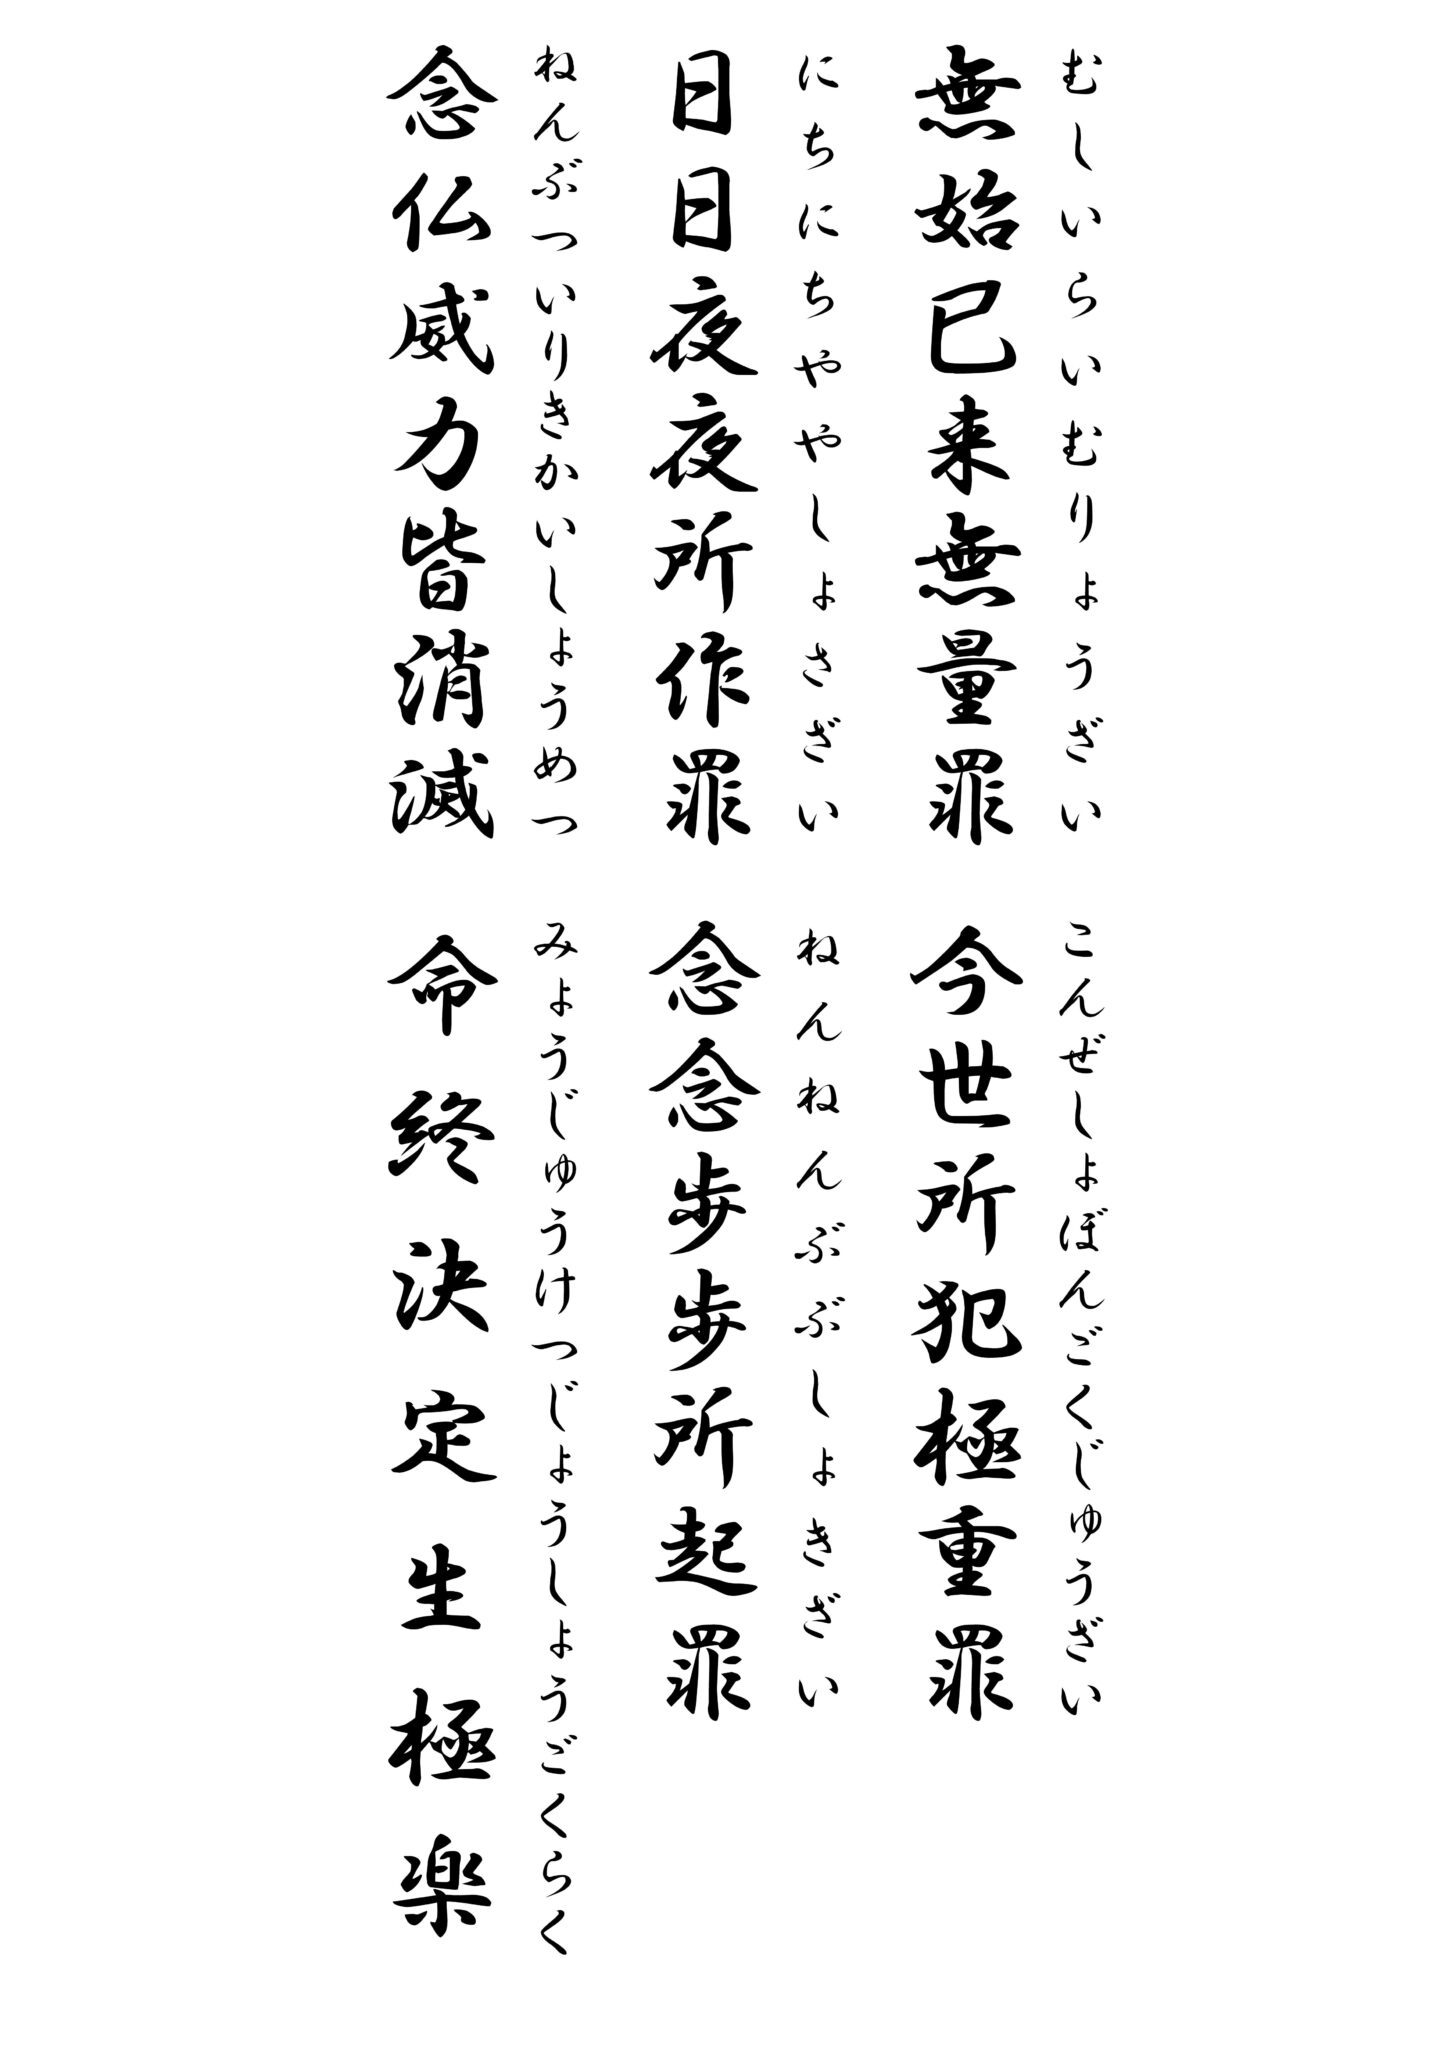 むしいらいむりょうざい
無始已来無量罪
こんぜしょぼんごくじゅうざい
今世所犯極重罪
にちにちややしょさざい
日日夜夜所作罪
ねんねんぶぶしょきざい
念念歩歩所起罪
ねんぶついりきかいしょうめつ
念仏威力皆消滅
みょうじゅうけつじょうしょうごくらく
命終決定生極楽